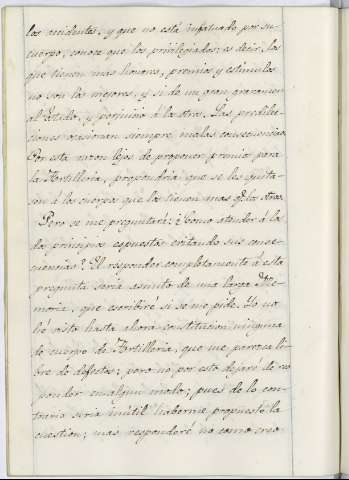 los accidentes, y que no está infatuado por su
cuerpo, conoce que los privilegiados; es decir, los
que tienen mas honores, premios y estimulos
no son los mejores, y si de un gran gravamen
al Estado, y perjuicio á los otros. Las predilec-
ciones ocasionan siempre malas consecuencias.
Por esta razon lejos de proponer premio para
la Artilleria, propondria que se les quita-
sen á los cuerpos que los tienen mas q.e los otros.
Pero se me preguntará: ¿Como atender á los
dos principios espuestos evitando sus conse-
cuencias? El responder completamente á esta
pregunta seria asunto de una larga Me-
moria, que escribiré si se me pide. Yo no
hé visto hasta ahora constitucion ninguna
de cuerpo de Artilleria, que me parezca li-
bre de defectos; pero no por esto dejaré de res
ponder en algun modo; pues de lo con-
trario seria inútil haberme propuesto la
cuestion; mas responderé no como creo